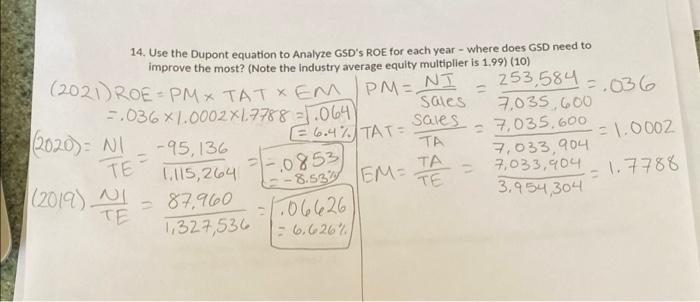 14. Use the Dupont equation to Analyze GSD's ROE for each year - where does GSD need to
improve the most? (Note the industry average equity multiplier is 1.99) (10)
(2021) ROE = PM x TAT x EM
= .036 x 1.0002 x 1.7788 = .064
= 6.4%
(2020) = NI / TE = -95,136 / 1,115,264 = -.0853
= -8.53%
(2019) NI / TE = 87,960 / 1,327,536 = .06626
= 6.626%
PM = NI / Sales = 253,584 / 7,035,600 = .036
TAT = Sales / TA = 7,035,600 / 7,033,904 = 1.0002
EM = TA / TE = 7,033,904 / 3,954,304 = 1.7788